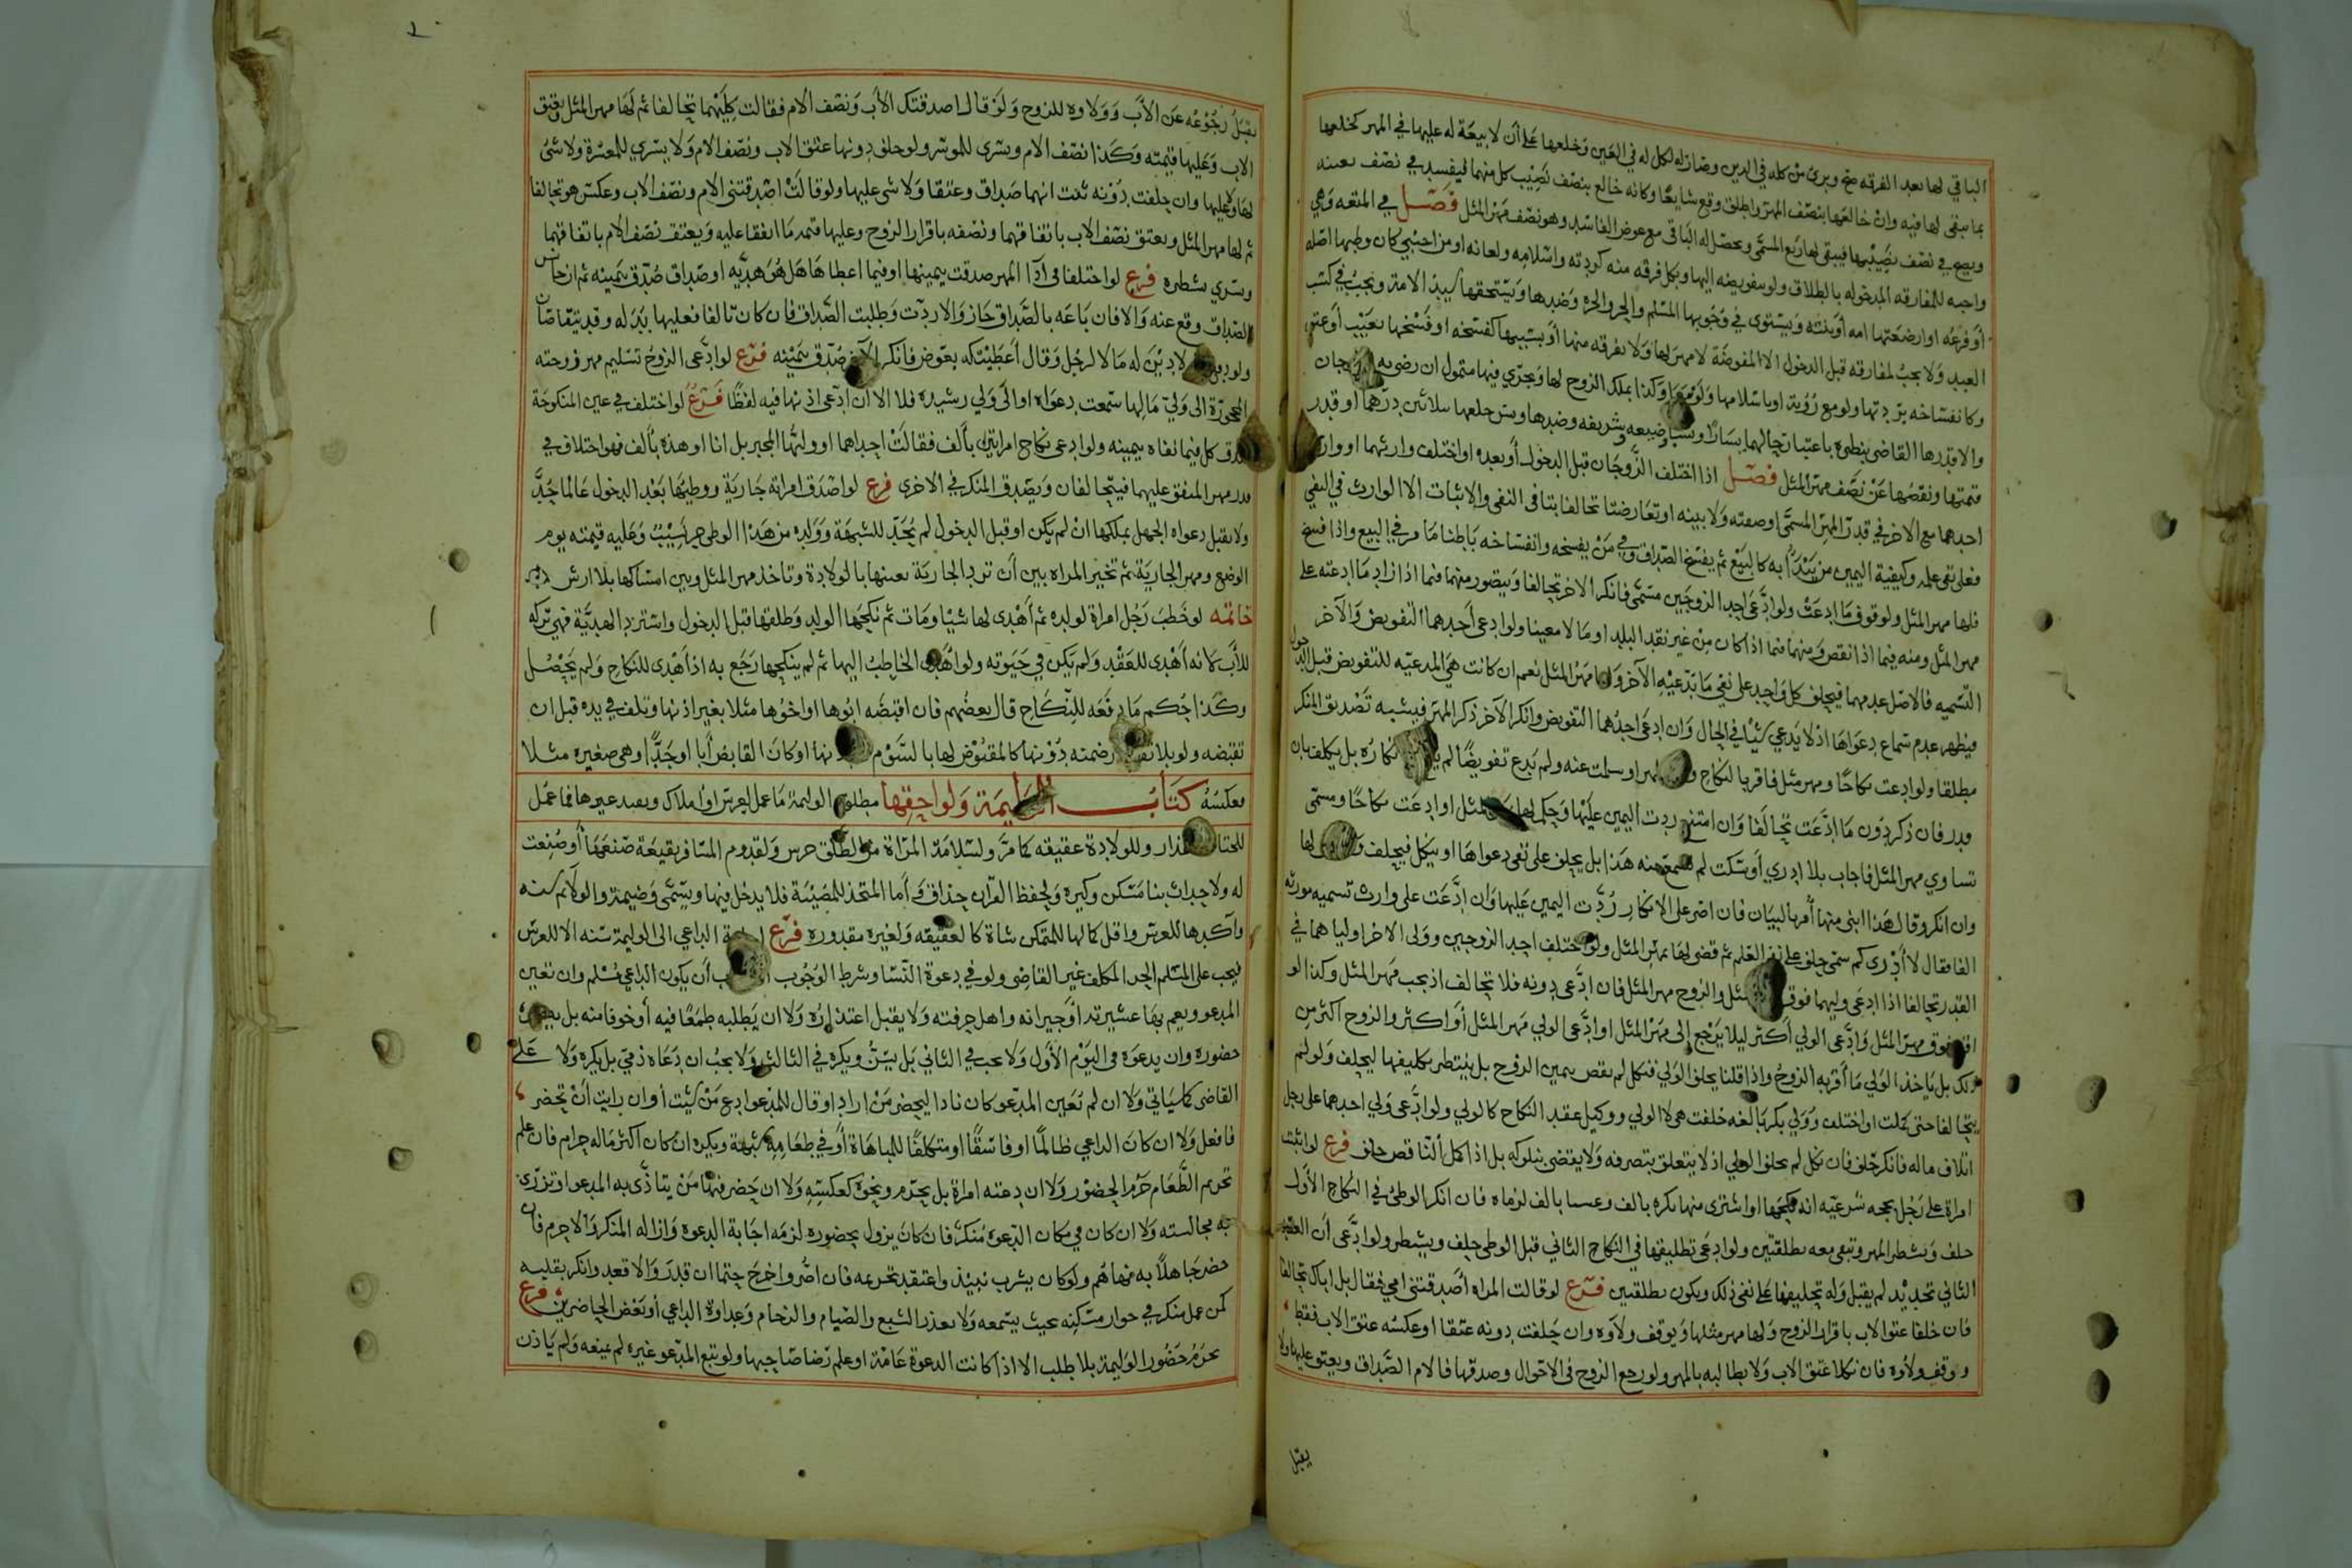 الباقي لها بعد الفرقه صح وبرئ من كله في الدين وصار له كل له في العين وخلعها على أن لا بيعة له عليها في المهر كخلعها
بما يبقى لها فيه وان خالعها بنصف المهر واطلق وقع شايعا وكانه خالع بنصف نصيب كل منهما فيفسد في نصف نصيبه
ويصح في نصف نصيبها فيبقى لها ربع المسمى ويحصل له الباقي مع عوض الفاسد وهو نصف مهر المثل فصل في المتعه وهي
واجبه للمفارقه المدخوله بالطلاق ولو بتفويضه اليها وبكل فرقه منه كردته واسلامه ولعانه او من اجنبي كان وطيها اصله
أو فرعه او ارضعتها امه أو بنته ويستوى في وجوبها المسلم والحر والحره وضدها ويستحقها سيد الامة وتجب في كسب
العبد ولا تجب لمفارقه قبل الدخول الا المفوضة لا مهر لها ولا بفرقه منها أو بسببها كفسخه او فسخها بعيب أو عتق
وكانفساخه بردتها ولو مع رؤية او باسلامها ولو وكذا بملك الزوج لها ويجزي فيها متمول ان رضى به الزوجان
والا قدرها القاضي بنظره باعتبار حالهما يسارا ونسبا وضيعه وشريفه وضدها ويسن جعلها بثلاثين درهما او قدر
قيمتها ونقصها عن نصف مهر المثل فصل اذا اختلف الزوجان قبل الدخول أو بعده او اختلف وارثهما او وارث
احدهما مع الاخر في قدر المهر المسمى او صفته ولا بينه او تعارضتا تحالفا بتا في النفي والاثبات الا الوارث في النفي
فعلى نفي علمه وكيفية اليمين من يبدأ به كالبيع ثم يفسخ الصداق وفي من يفسخه وانفساخه باطنا ما مر في البيع واذا فسخ
فلها مهر المثل ولو فوق ما ادعت ولو ادعى احد الزوجين مسمى فانكر الاخر تحالفا ويتصور منهما فيما اذا زاد ما ادعته على
مهر المثل ومنه فيما اذا نقص ومنهما فيما اذا كان من غير نقد البلد او مالا معينا ولو ادعى أحدهما التفويض والآخر
التسميه فالاصل عدمهما فيحلف كل واحد على نفي ما يدعيه الآخر ولها مهر المثل نعم ان كانت هي المدعيه للتفويض قبل الدخول
فيظهر عدم سماع دعواها اذ لا يدعي شيئا في الحال وان ادعى احدهما التفويض وانكر الآخر ذكر المهر فيشبه تصديق المنكر
مطلقا ولو ادعت نكاحا ومهر مثل فاقر بالنكاح المهر او سكت عنه ولم يدع تفويضا لم انكاره بل يكلف بيان
قدر فان ذكر دون ما ادعت تحالفا وان امتنع ردت اليمين عليها وحكم لها المثل او ادعت نكاحا ومسمى
تساوي مهر المثل فاجاب بلا ادري أو سكت لم منه هذا بل يحلف على نفي دعواها او ينكل فيحلف لها
وان انكر وقال هذا ابني منها أمر بالبيان فان اصر على الانكار ردت اليمين عليها وان ادعت على وارث تسميه مورثه
الفا فقال لا أدرى كم سمى حلف على نفي العلم ثم قضى لها بمهر المثل ولو اختلف احد الزوجين وولى الاخر اوليا هما في
القدر تحالفا اذا ادعى وليهما فوق المثل والزوج مهر المثل فان ادعى دونه فلا تحالف اذ يجب مهر المثل وكذا لو
فوق مهر المثل وادعى الولي أكثر ليلا يرجع إلى مهر المثل او ادعى الولي مهر المثل أو اكثر والزوج اكثر من
ذلك بل يأخذ الولي ما أقر به الزوج واذا قلنا يحلف الولي فنكل لم يقض بيمين الزوج بل ينتظر تكليفها ليحلف ولو لم
يتحالفا حتى كملت او اختلف وولي بكر بالغه حلفت هي لا الولي ووكيل عقد النكاح كالولي ولو ادعى ولي احدهما على رجل
اتلاف ماله فانكر حلف فان نكل لم يحلف الولي اذ لا يتعلق بتصرفه ولا يقضى بنكوله بل اذا كمل الناقص حلف فرع لو اثبت
امراة على رجل بحجه شرعيه انه نكحها او اشترى منها بكره بالف وعسيا بالف لزماه فان انكر الوطئ في النكاح الأول
حلف وتشطر المهر وتبقى معه بطلقتين ولو ادعى تطليقها في النكاح الثاني قبل الوطئ حلف ويشطر ولو ادعى أن العقد
الثاني تجديد لم يقبل وله تحليفها على نفي ذلك ويكون بطلقتين فرع لو قالت المراه أصدقتنى امي فقال بل اباك تحالفا
فان حلفا عتق الاب باقرار الزوج ولها مهر مثلها ويوقف ولاوه وان حلفت دونه عتقا او عكسه عتق الاب فقط
ووقف ولاوه فان نكلا عتق الاب ولا يطالبه بالمهر ولو رجع الزوج في الاحوال وصدقها فالام الصداق ويعتق عليها ولا
يقبل
يقبل رجوعه عن الأب وولاوه للزوج ولو قال اصدقتك الأب ونصف الام فقالت كليهما تحالفا ثم لها مهر المثل ويعتق
الاب وعليها قيمته وكذا نصف الام ويسرى للموسر ولو حلف دونها عتق الاب ونصف الام ولا يسري للمعسرة ولا شئ
لها ولا عليها وان حلفت دونه ثبت انهما صداق وعتقا ولا شى عليها ولو قالت اصدقتنى الام ونصف الاب وعكس هو تحالفا
ثم لها مهر المثل ويعتق نصف الاب باتفاقهما ونصفه باقرار الزوج وعليها قيمة ما اتفقا عليه ويعتق نصف الام باتفاقهما
ويسري بشطره فرع لو اختلفا في أدا المهر صدقت بيمينها او فيما اعطاها هل هو هديه او صداق صدق بيمينه ثم ان جانس
الصداق وقع عنه والا فان باعه بالصداق جاز والا ردت وطلبت الصداق فان كان تالفا فعليها بدله وقد يتقاصان
ولو دفع لا دين له مالا لرجل وقال أعطيتكه بعوض فانكر الآخر صدق بيمينه فرع لو ادعى الزوج تسليم مهر زوجته
المحجورة الى ولي مالها سمعت دعواه او الى ولي رشيده فلا الا ان ادعى اذنها فيه لفظا فرع لو اختلف في عين المنكوحة
صدق كل فيما نفاه بيمينه ولو ادعى نكاح امراتين بألف فقالت احداهما او وليها المجبر بل انا او هذه بألف فهو اختلاف في
قدر مهر المتفق عليهما فيتحالفان ويصدق المنكر في الاخرى فرع لو اصدق امراته جارية ووطيها بعد الدخول عالما حد
ولا يقبل دعواه الجهل بملكها ان لم يكن او قبل الدخول لم يحد للشبهة وولده من هذا الوطى حر نسيب وعليه قيمته يوم
الوضع ومهر الجارية ثم تخير المراه بين أن ترد الجارية بعيبها بالولادة وتاخذ مهر المثل وبين امساكها بلا ارش
خاتمه لو خطب رجل امراة لولده ثم أهدى لها شيا ومات ثم نكحها الولد وطلقها قبل الدخول واسترد الهدية فهي تركه
للأب لانه أهدى للعقد ولم يكن في حيوته ولو أهدى الخاطب اليها ثم لم ينكحها رجع به اذ أهدى للنكاح ولم يحصل
وكذا حكم ما دفعه للنكاح قال بعضهم فان اقبضه ابوها او اخوها مثلا بغير اذنها وتلف في يده قبل ان
تقبضه ولو بلا ضمنته دونها كالمقبوض لها بالسوم او كان القابض أبا او جدا وهي صغيره مثلا
بعكسه كتاب الوليمة ولواحقها مطلق الوليمة ما عمل لعرس او املاك وبقيد غيرها فما عمل
للختان اعذار وللولادة عقيقه كما مر ولسلامة المرأة من الطلق خرس ولقدوم المسافر نقيعة صنعها أو صنعت
له ولاحداث بنا مسكن وكيره ولحفظ القرآن حذاق وأما المتخذ للمصيبة فلا يدخل فيها ويسمى وضيمة والولائم سنه
وآكدها للعرس واقل كمالها للمتمكن شاة كالعقيقه ولغيره مقدوره فرع الداعي الى الوليمة سنه الا للعرس
فيجب على المسلم الحر المكلف غير القاضي ولو في دعوة النسا وشرط الوجوب أن يكون الداعي مسلم وان تعين
المدعو ويعم بها عشيرته أو جيرانه واهل حرفته ولا يقبل اعتذاره ولا ان يطلبه طمعا فيه أو خوفا منه بل
حضوره وان يدعوه في اليوم الأول ولا يجب في الثاني بل يسن ويكره في الثالث ولا يجب ان دعاه ذمي بل يكره ولا على
القاضي كما سياتي ولا ان لم تعين المدعو كان نادا ليحضر من اراد او قال للمدعو ادع من شئت أو ان رايت أن تحضر
فافعل ولا ان كان الداعي ظالما او فاسقا او متكلفا للمباهاة أو في طعامه شبهة ويكره ان كان اكثر ماله حرام فان علم
تحريم الطعام حرم الحضور ولا ان دعته امراة بل يحرم ونحوه كعكسه ولا ان حضر فيها من يتاذى به المدعو او تزري
به مجالسته ولا ان كان في مكان الدعوة منكر فان كان يزول بحضوره لزمه اجابة الدعوه وازاله المنكر والا حرم فان
حضر جاهلا به نهاهم ولو كان يشرب نبيذ واعتقد تحريمه فان اصروا خرج حتما ان قدر والا قعد وانكر بقلبه
كمن عمل منكر في جوار مسكنه بحيث يسمعه ولا يعذر الشبع والصيام والزحام وعداوة الداعي أو بعض الحاضرين فرع
يحرم حضور الوليمة بلا طلب الا اذا كانت الدعوة عامة او علم رضا صاحبها ولو تبع المدعو غيره لم يمنعه ولم ياذن